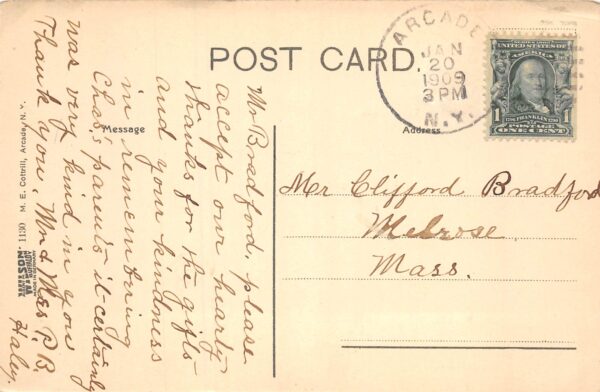 POST CARD.
ARCADE
JAN
20
1909
3 PM
N.Y.
UNITED STATES OF
AMERICA
1 1
FRANKLIN
POSTAGE
ONE CENT
Message
Address
Mr Clifford Bradford
Melrose
Mass.
Mr Bradford, please
accept our hearty
thanks for the gifts
and your kindness
in remembering
Chas's parents it certainly
was very kind in you
Thank you, Mr & Mrs P. B.
Haley
1130 M. E. Cottrill, Arcade, N. Y.